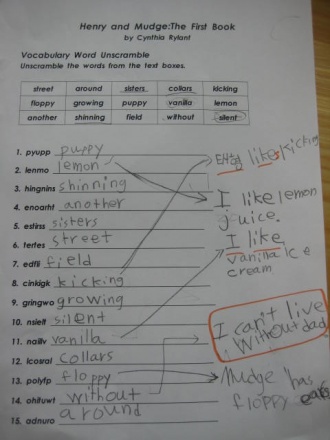 Henry and Mudge:The First Book
by Cynthia Rylant
Vocabulary Word Unscramble
Unscramble the words from the text boxes.
street around sisters collars kicking
floppy growing puppy vanilla lemon
another shinning field without silent
1. pyupp puppy
2. lenmo lemon
3. hingnins shinning
4. enoaht another
5. estirss sisters
6. tertes street
7. edfli field
8. cinkigk kicking
9. gringwo growing
10. nsielt silent
11. naaliv vanilla
12. lcosral collars
13. polyfp floppy
14. ohituwt without
15. adnuro around
태형 like kicking
I like lemon
juice.
I like
vanilla ice
cream
I can't live
without dad
Mudge has
floppy ears